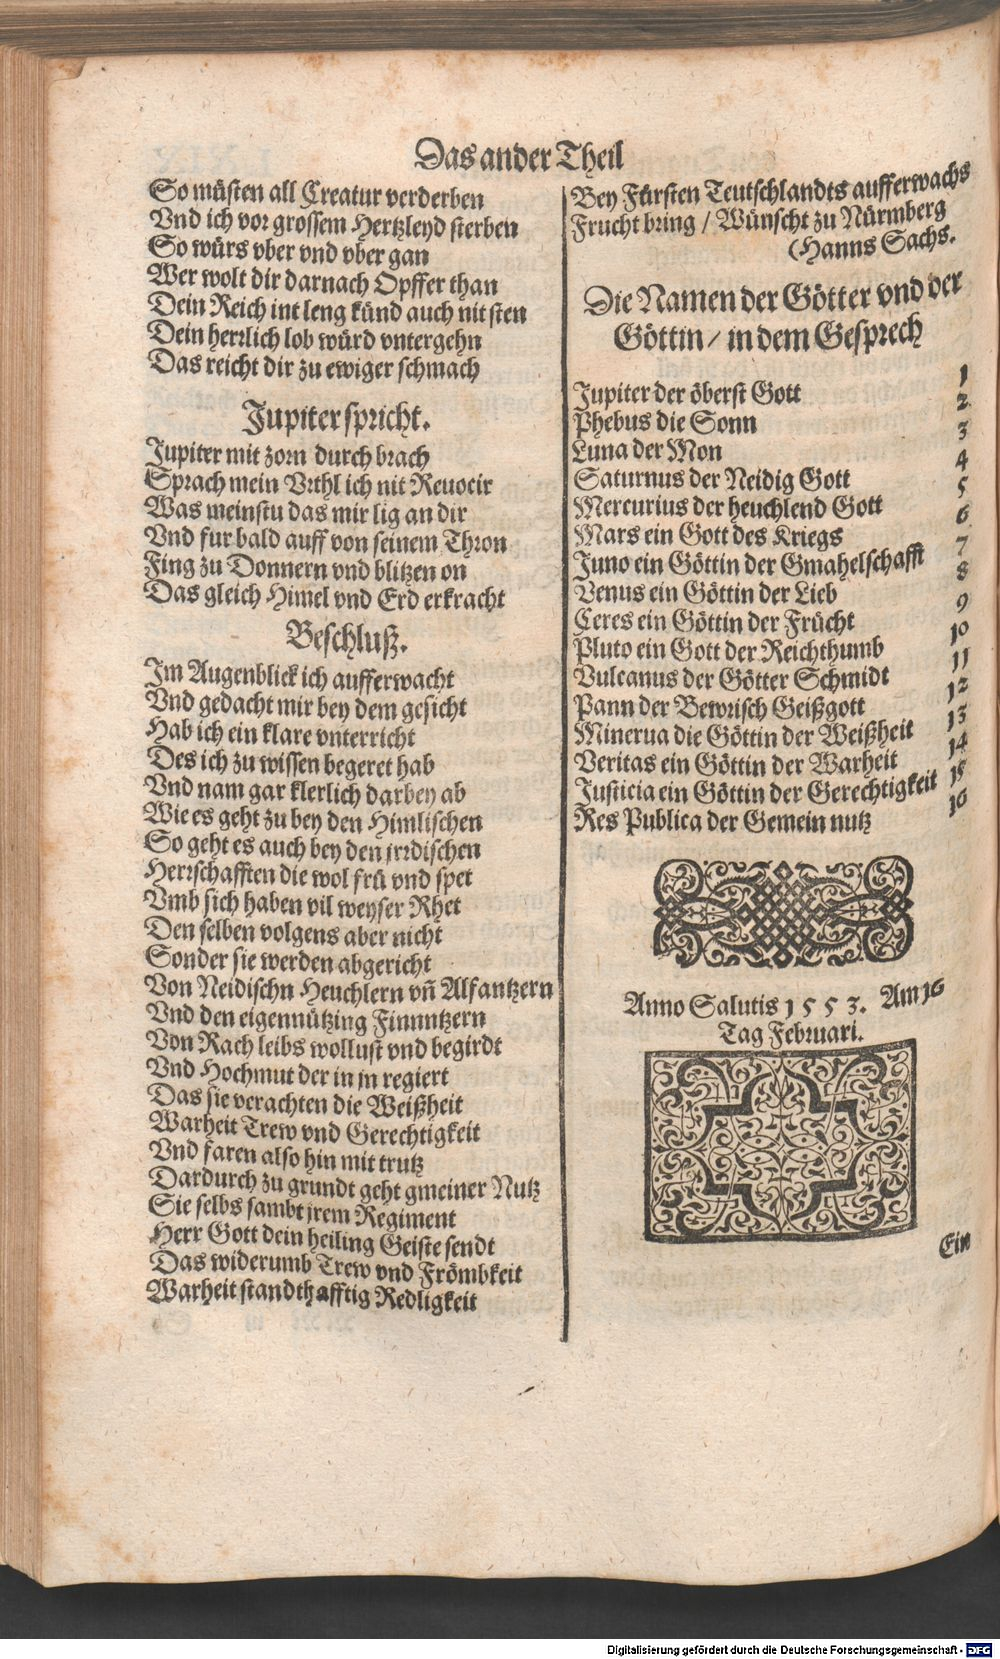 Das ander Theil
So müsten all Creatur verderben
Vnd ich vor grossem Hertzleyd sterben
So würs vber vnd vber gan
Wer wolt dir darnach Opffer than
Dein Reich int leng künd auch nit sten
Dein herrlich lob würd vntergehn
Das reicht dir zu ewiger schmach
Jupiter spricht.
Jupiter mit zorn durch brach
Sprach mein Vrthl ich nit Reuocir
Was meinstu das mir lig an dir
Vnd fur bald auff von seinem Thron
Fing zu Donnern vnd blitzen on
Das gleich Himel vnd Erd erkracht
Beschluß.
Im Augenblick ich aufferwacht
Vnd gedacht mir bey dem gesicht
Hab ich ein klare vnterricht
Des ich zu wissen begeret hab
Vnd nam gar klerlich darbey ab
Wie es geht zu bey den Himlischen
So geht es auch bey den jrrdischen
Herrschafften die wol frü vnd spet
Vmb sich haben vil weyser Rhet
Den selben volgens aber nicht
Sonder sie werden abgericht
Von Neidischn Heuchlern vñ Alfantzern
Vnd den eigennützing Finnntzern
Von Rach leibs wollust vnd begirdt
Vnd Hochmut der in jn regiert
Das sie verachten die Weißheit
Warheit Trew vnd Gerechtigkeit
Vnd faren also hin mit trutz
Dardurch zu grundt geht gmeiner Nutz
Sie selbs sambt jrem Regiment
Herr Gott dein heiling Geiste sendt
Das widerumb Trew vnd Frömbkeit
Warheit standthafftig Redligkeit
Bey Fürsten Teutschlandts aufferwachs
Frucht bring / Wünscht zu Nürmberg
(Hanns Sachs.
Die Namen der Götter vnd der
Göttin / in dem Gesprech
Jupiter der öberst Gott 1
Phebus die Sonn 2
Luna der Mon 3
Saturnus der Neidig Gott 4
Mercurius der heuchlend Gott 5
Mars ein Gott des Kriegs 6
Juno ein Göttin der Gmahelschafft 7
Venus ein Göttin der Lieb 8
Ceres ein Göttin der Frücht 9
Pluto ein Gott der Reichthumb 10
Vulcanus der Götter Schmidt 11
Pann der Bewrisch Geißgott 12
Minerua die Göttin der Weißheit 13
Veritas ein Göttin der Warheit 14
Justicia ein Göttin der Gerechtigkeit 15
Res Publica der Gemein nutz 16
Anno Salutis 1553. Am 16
Tag Februari.
Ein
Digitalisierung gefördert durch die Deutsche Forschungsgemeinschaft - DFG